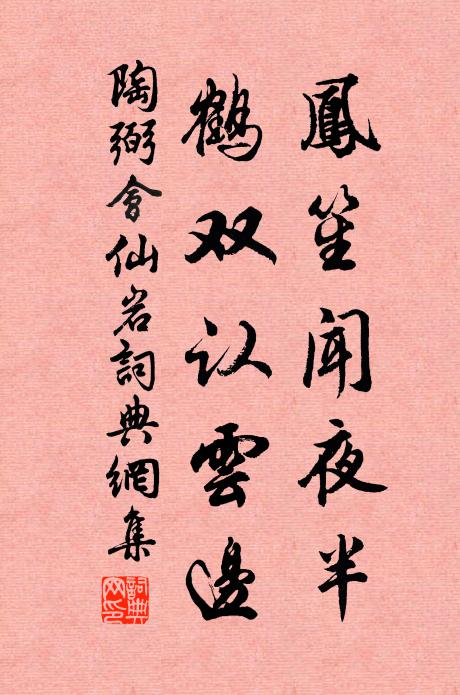 鳳笙闻夜半
鶴双认雲邊
陶弼會仙岩詞典網集
詞典
网印